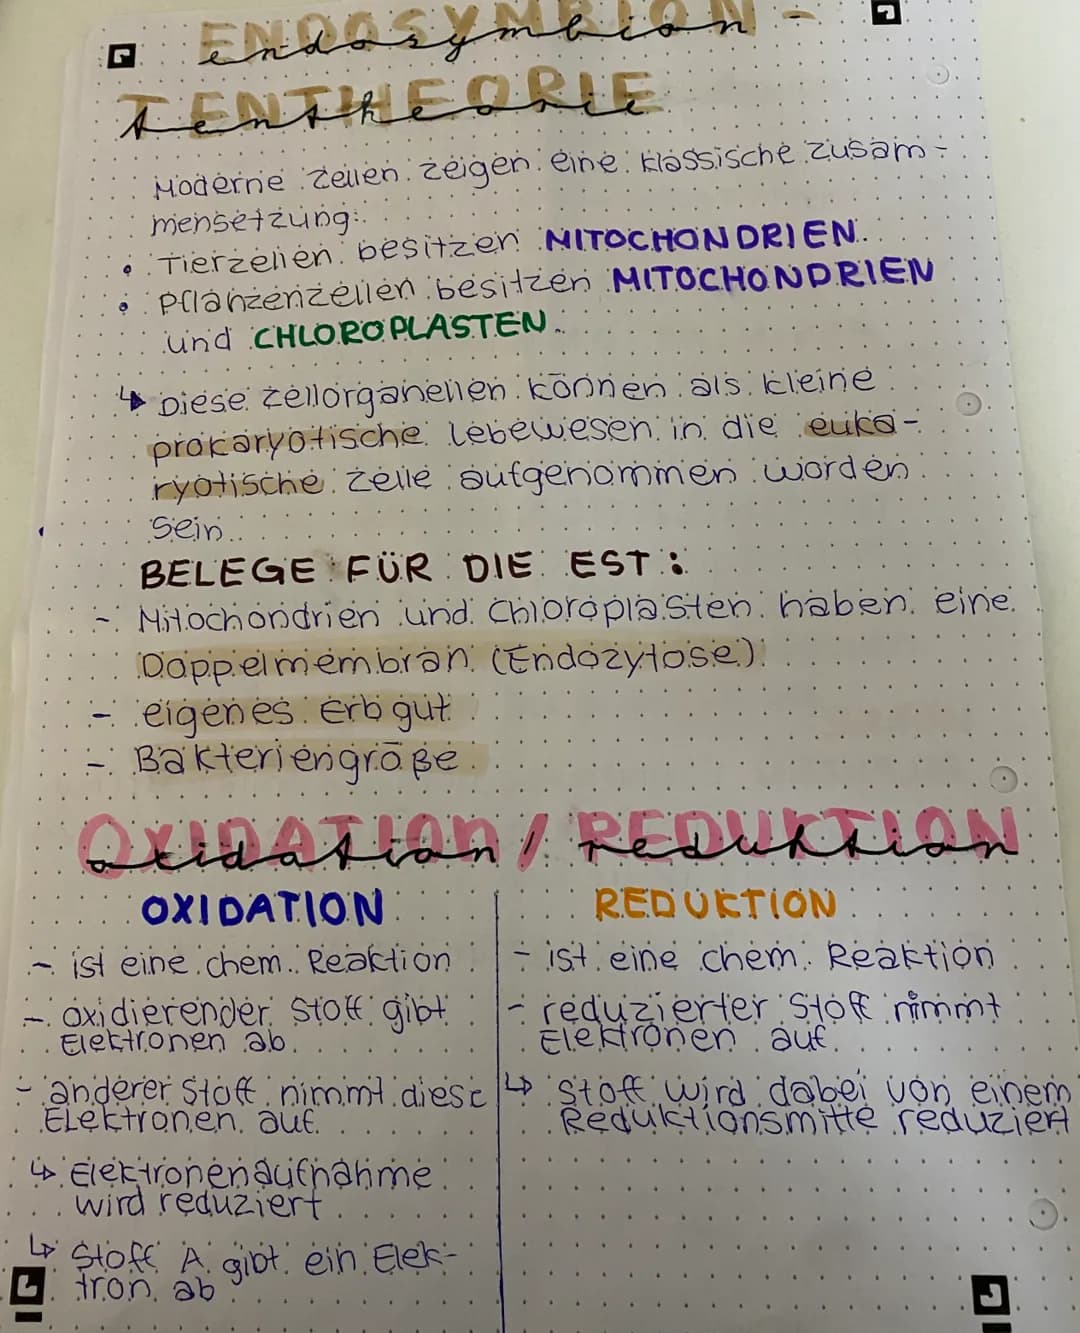 ENDOSYMBION-
endosymbion
TENTHEORIE
tentheorie
Moderne Zellen zeigen eine klassische Zusam-
mensetzung:
• Tierzellen besitzen MITOCHONDRIEN.
• Pflanzenzellen besitzen MITOCHONDRIEN
und CHLOROPLASTEN.
↳ Diese Zellorganellen können als kleine
prokaryotische Lebewesen in die euka-
ryotische Zelle aufgenommen worden
sein.
BELEGE FÜR DIE EST:
- Mitochondrien und Chloroplasten haben eine
Doppelmembran (Endozytose)
- eigenes Erbgut
- Bakteriengröße
OXIDATION / REDUKTION
oxidation / reduktion
OXIDATION
- ist eine chem. Reaktion
- oxidierender Stoff gibt
Elektronen ab.
- anderer Stoff nimmt diese
Elektronen auf.
↳ Elektronenaufnahme
wird reduziert
↳ Stoff A gibt ein Elek-
tron ab
REDUKTION
- ist eine chem. Reaktion
- reduzierter Stoff nimmt
Elektronen auf.
↳ Stoff wird dabei von einem
Reduktionsmitte reduziert